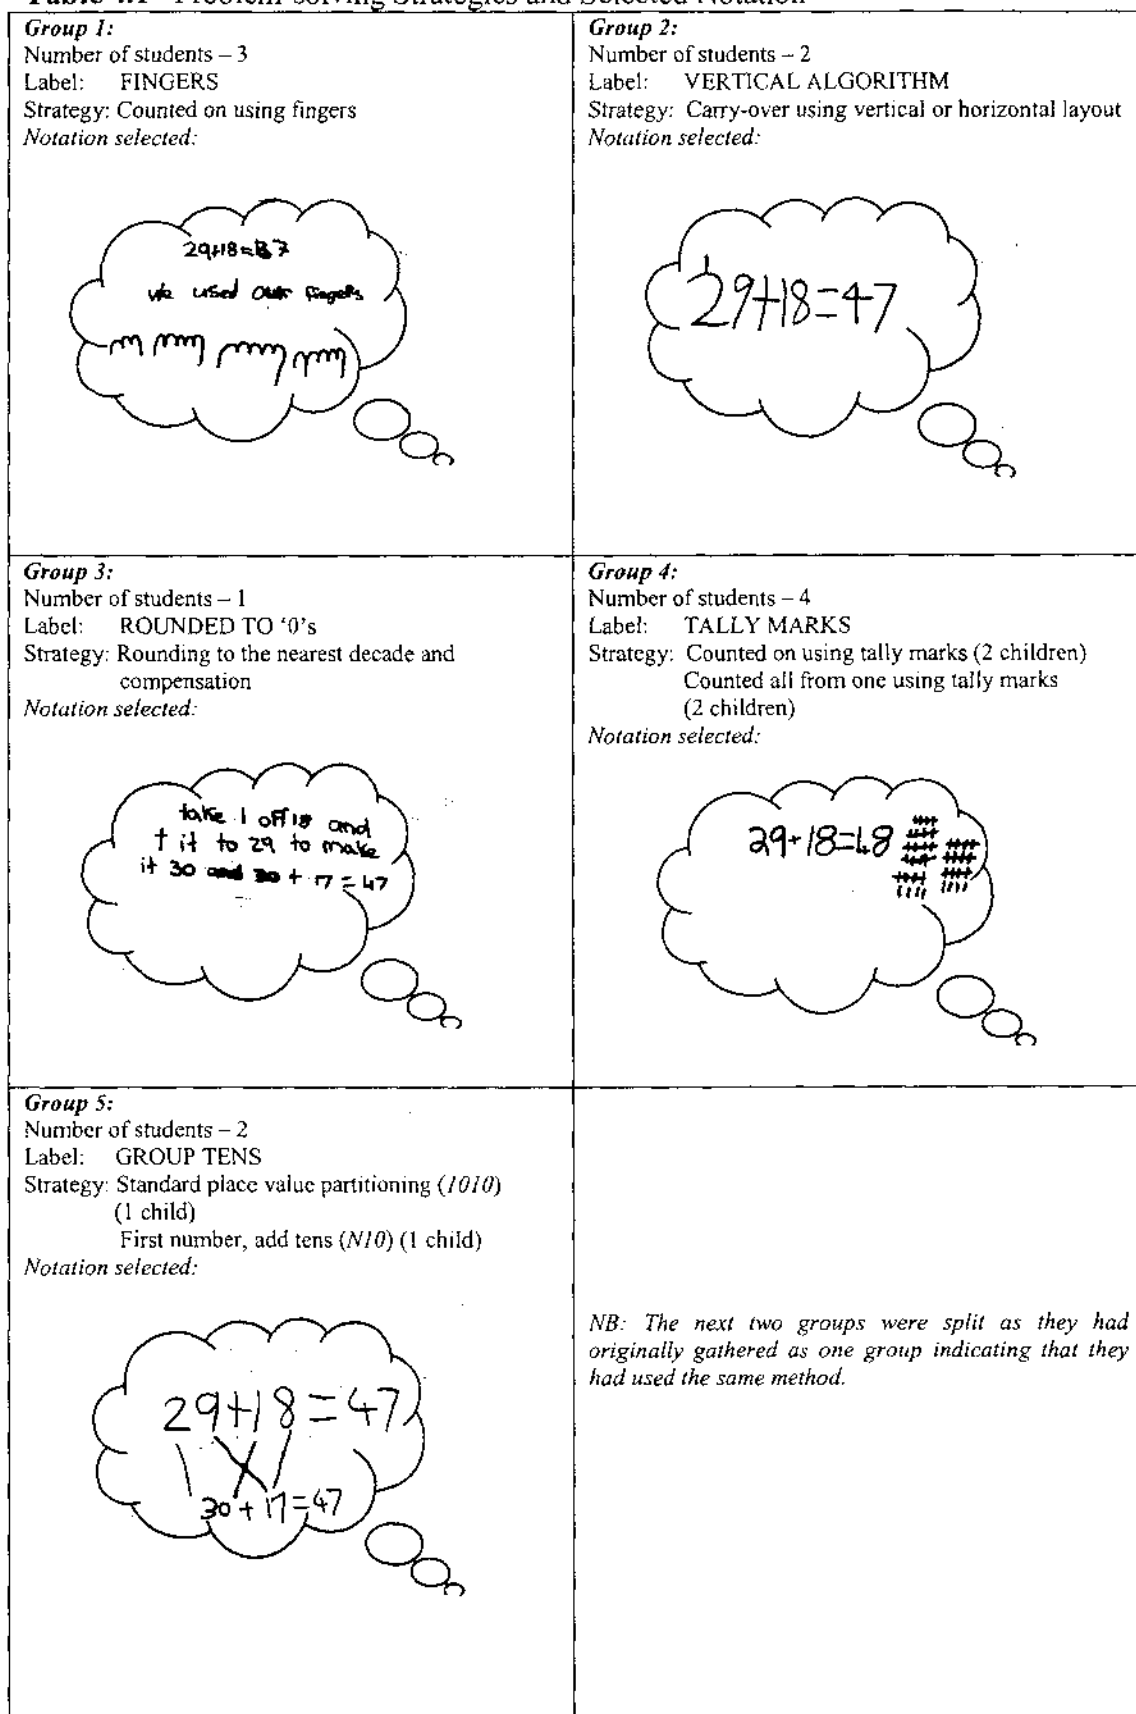 Table 4.1 Problem-solving Strategies and Selected Notation
Group 1:
Number of students – 3
Label: FINGERS
Strategy: Counted on using fingers
Notation selected:
29+18=
we used our fingers
Group 2:
Number of students – 2
Label: VERTICAL ALGORITHM
Strategy: Carry-over using vertical or horizontal layout
Notation selected:
29+18=47
Group 3:
Number of students – 1
Label: ROUNDED TO ‘0’s
Strategy: Rounding to the nearest decade and
compensation
Notation selected:
take 1 off 18 and
+ it to 29 to make
it 30 and 30 + 17 = 47
Group 4:
Number of students – 4
Label: TALLY MARKS
Strategy: Counted on using tally marks (2 children)
Counted all from one using tally marks
(2 children)
Notation selected:
29+18=48
Group 5:
Number of students – 2
Label: GROUP TENS
Strategy: Standard place value partitioning (1010)
(1 child)
First number, add tens (N10) (1 child)
Notation selected:
29+18=47
30+17=47
NB: The next two groups were split as they had
originally gathered as one group indicating that they
had used the same method.